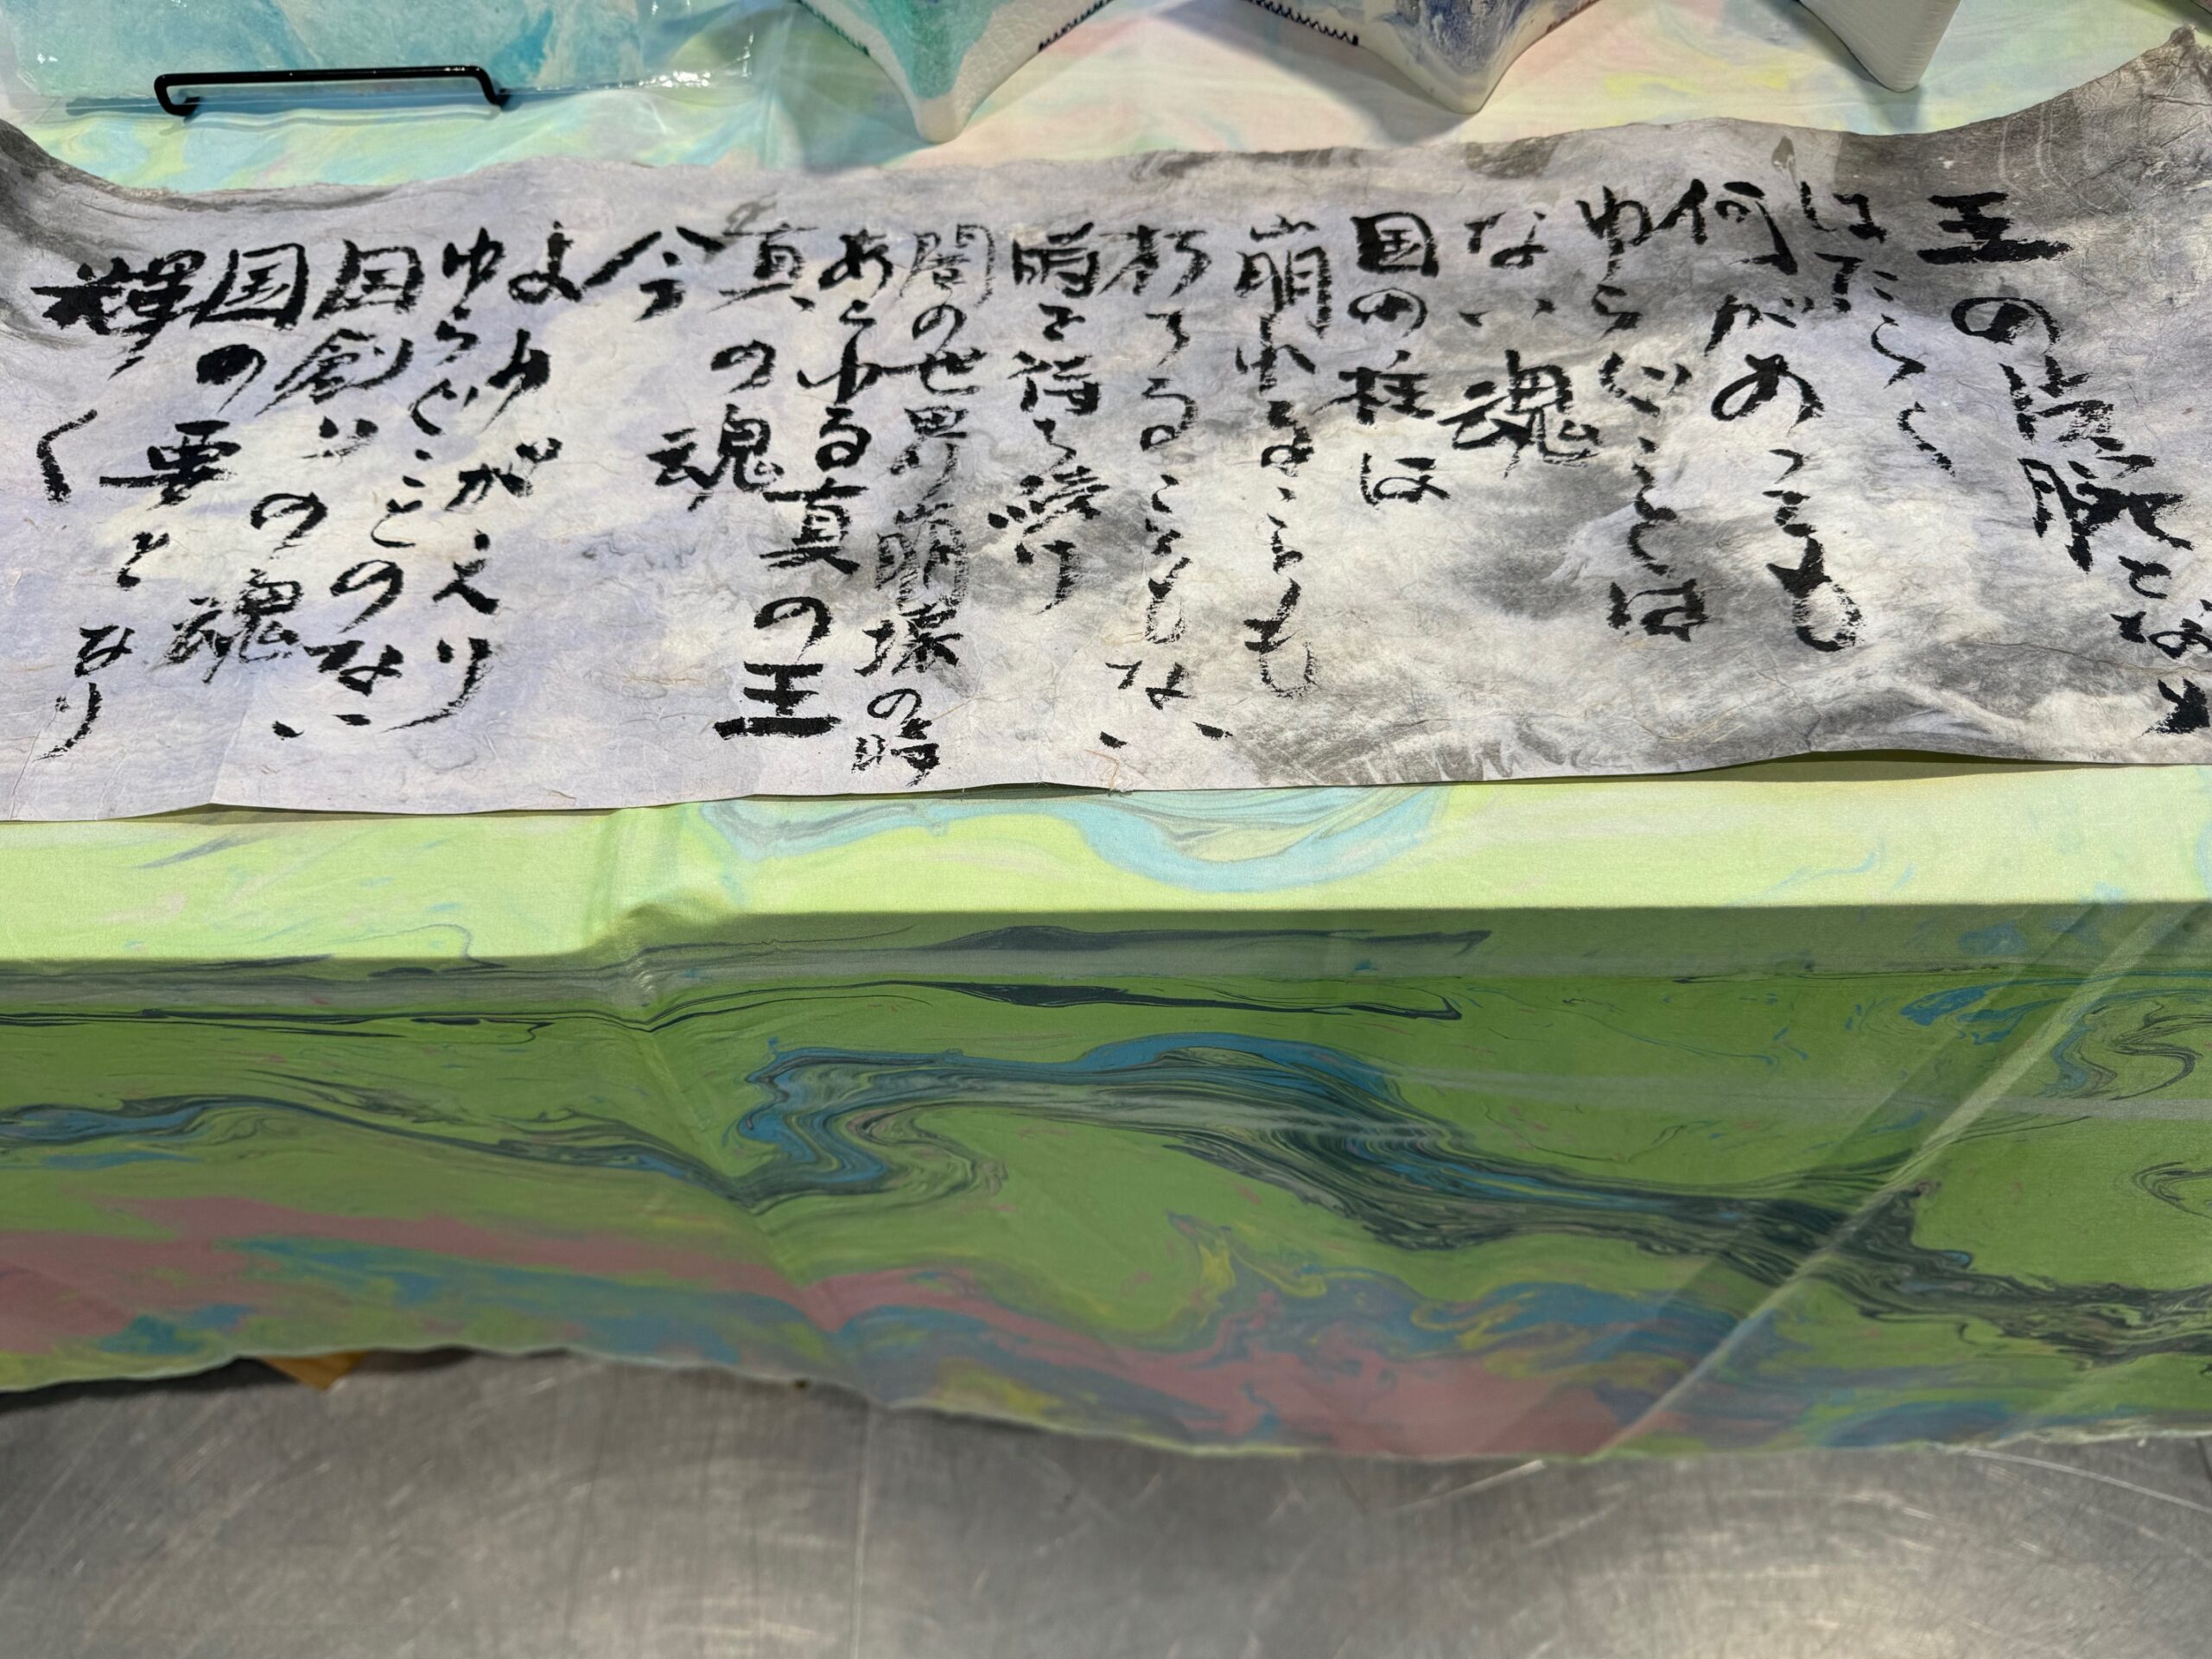 王の盛隆となり
はたらく
何があっても
ゆらぐことは
ない魂
国の柱は
崩れようとも
朽てることもない
時を待ち続け
闇の世界崩壊の時
あらゆる真の王
真の魂
今
よみがえり
ゆらぐことのない
国創りの魂
国の要となり
輝く